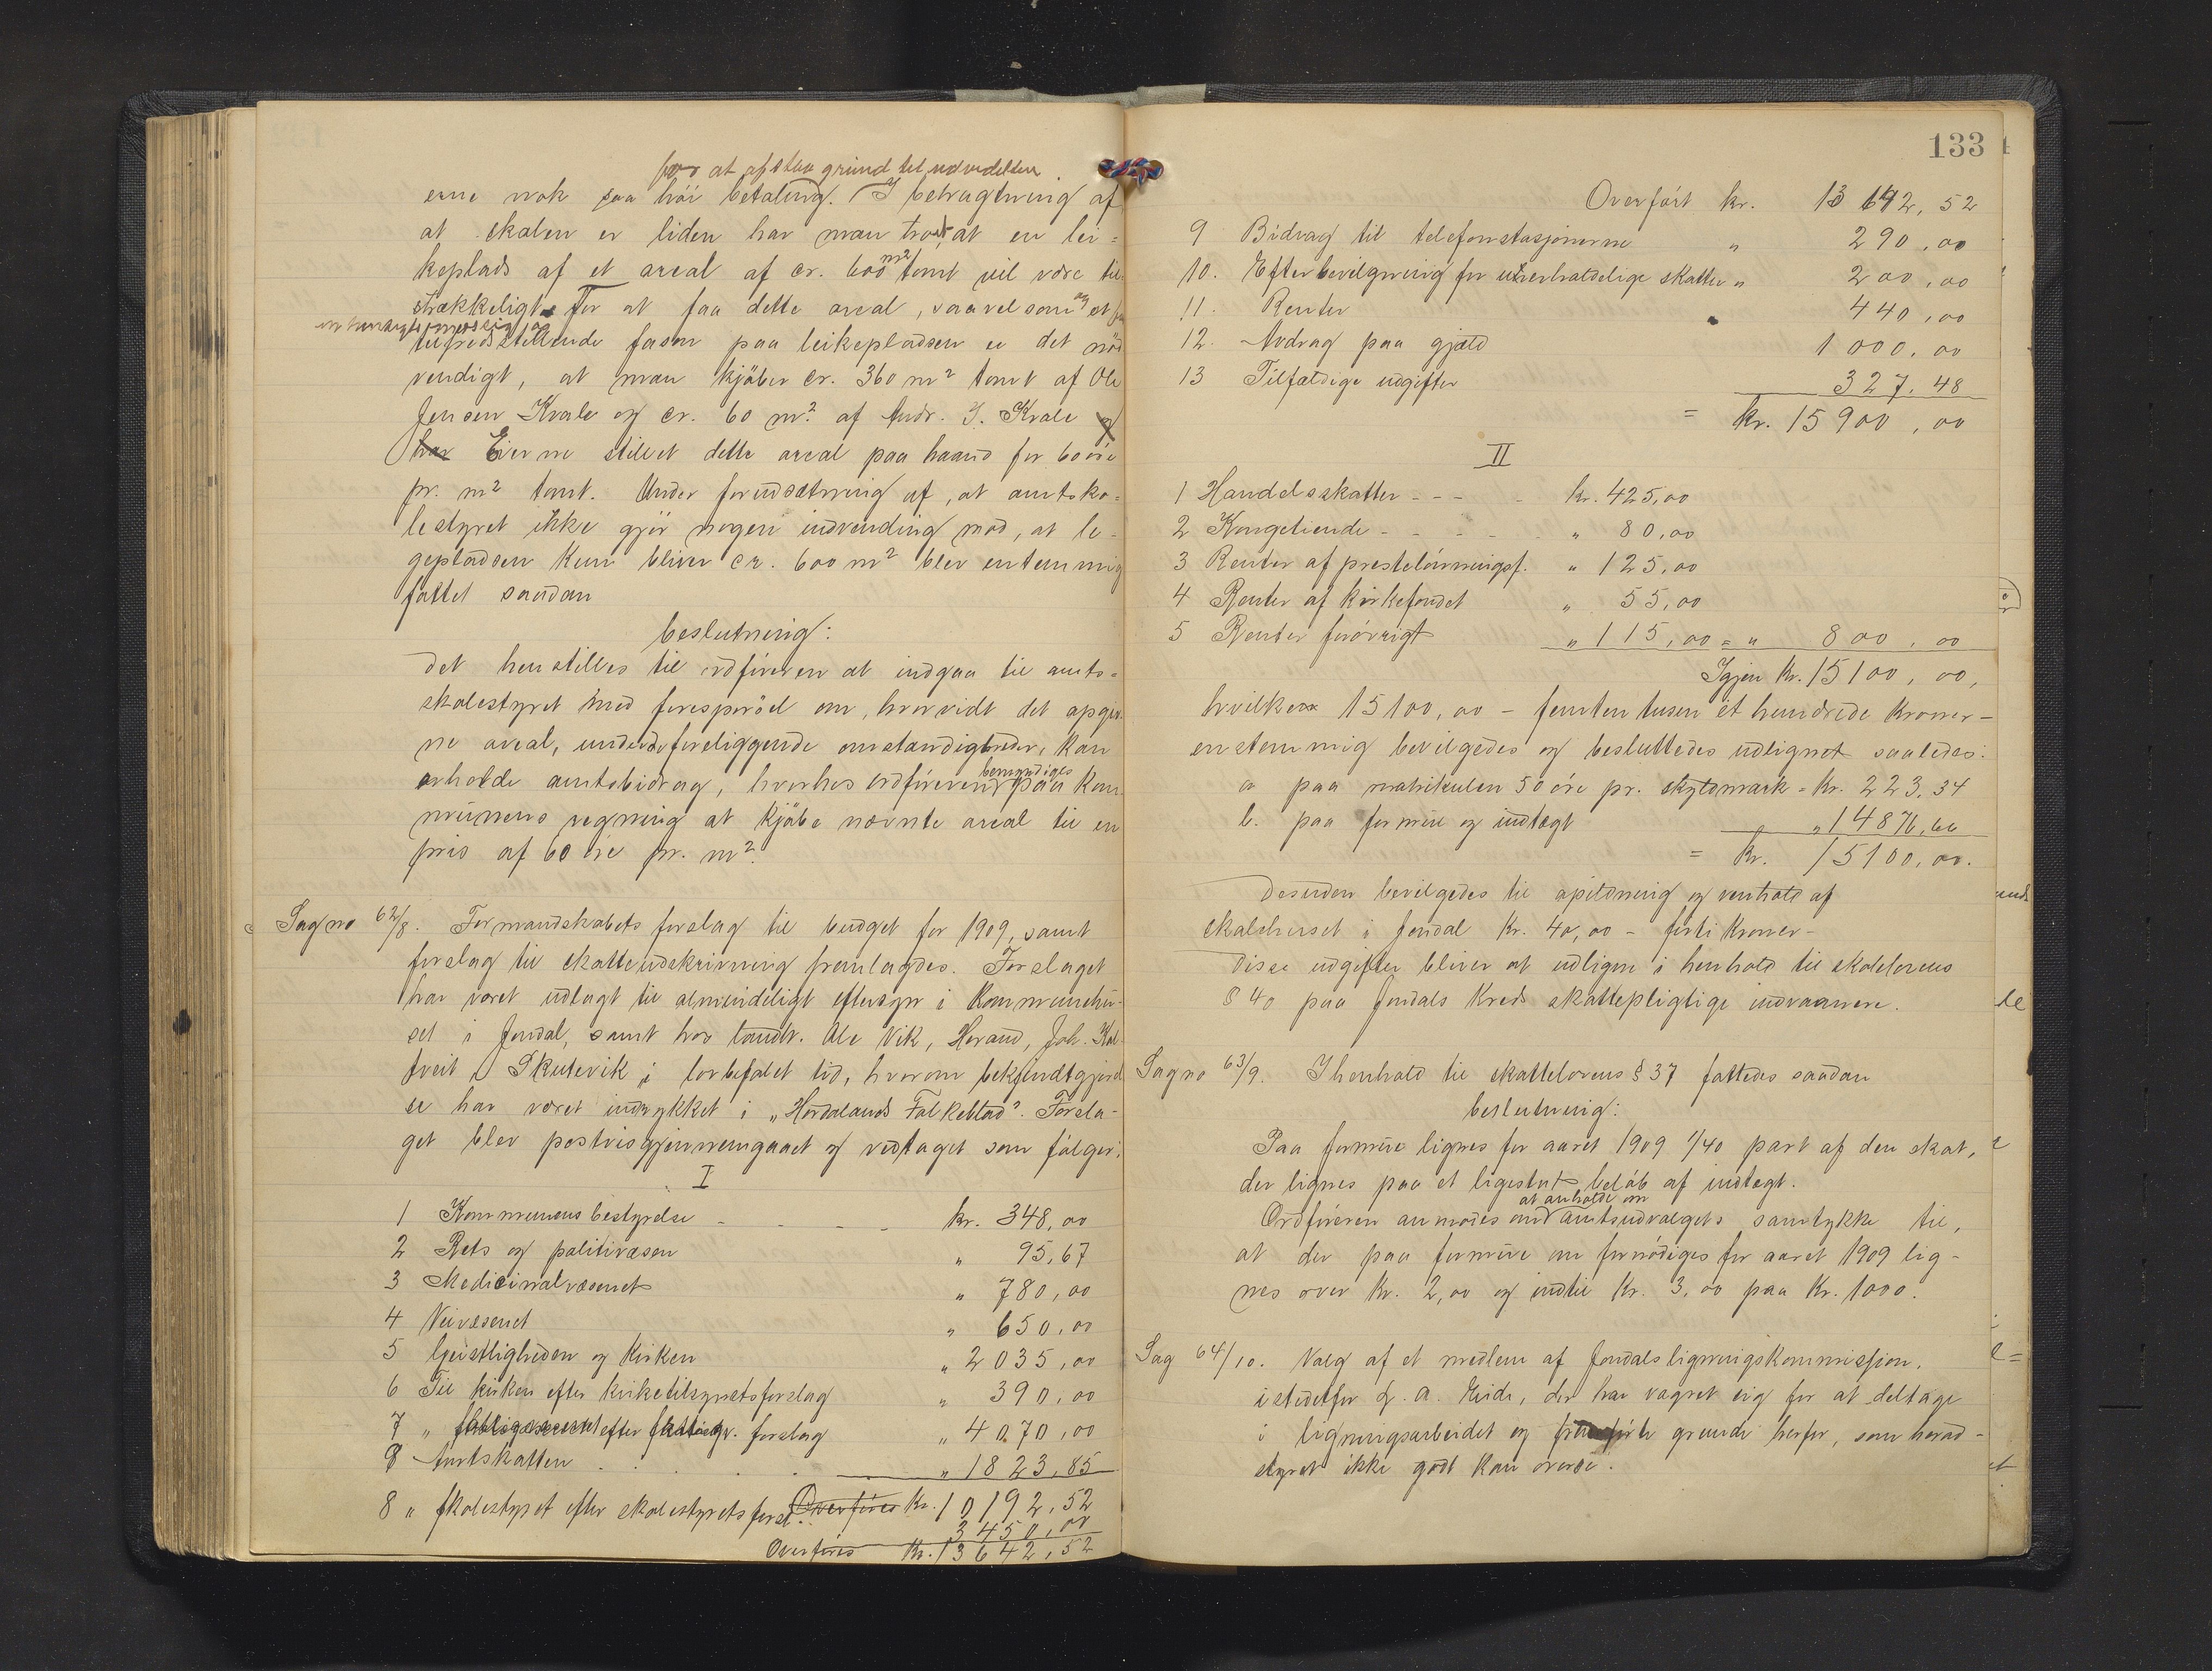 for at afstaa grund til udvidelsen
erne nok saa høi betaling. I betragtning af
at skolen er liden har man troet, at en lei=
keplads af et areal af cr. 600 m² tomt vil være til
strækkeligt. For at faa dette areal, saavel som og et
hensigtsmessig og
tilfredsstillende fason paa leikepladsen er det nød
vendigt, at man kjøber cr. 360 m² tomt af Ole
Jensen Kvale og cr. 60 m² af Andr. J. Kvale og
har Eierne stillet dette areal paa haand for 60 øre
pr. m² tomt. Under forudsætning af, at amtsko=
lestyret ikke gjør nogen indvending mod, at le-
gepladsen kun bliver cr. 600 m² blev enstemmig
fattet saadan
beslutning:
Det henstilles til ordføreren at indgaa til amts=
skolestyret med forespørsel om, hvorvidt det opgiv
ne areal, under de foreliggende omstændigheder, kan
erholde amtsbidrag, hvorhos ordføreren bemyndiges paa kom
munens regning at kjøbe nævnte areal til en
pris af 60 øre pr. m².
Sag no 62/8. Formandskabets forslag til budget for 1909, samt
forslag til skatteudskrivning fremlagdes. Forslaget
har været udlagt til almindeligt eftersyn i Kommunehu-
set i Jondal, samt hos landh. Ole Vik, Herand, Joh. Kol
tveit i Skutevik i lovbefalet tid, hvorom bekjendtgjørel
se har været indrykket i „Hordalands Folkeblad". Forsla-
get blev postvis gjennemgaaet og vedtaget som følger:
I
1 Kommunens bestyrelse - - - - kr. 348,00
2 Rets og politivæsen „ 95,67
3 Medicinalvæsenet „ 780,00
4 Veivæsenet „ 650,00
5 Geistligheden og Kirken „ 2035,00
6 Til kirken efter kirketilsynets forslag „ 390,00
7 „ fattigvæsenet efter fattigv. forslag „ 4070,00
8 Amtskatten „ 1823,85
Overføres Kr. 10192,52
8 „ skolestyret efter skolestyrets forsl. 3450,00
Overføres Kr. 13642,52
133
Overført kr. 13642,52
9 Bidrag til telefonstasjonerne „ 290,00
10. Efterbevilgning for uerholdelige skatter „ 200,00
11. Renter „ 440,00
12. Avdrag paa gjæld 1000,00
13 Tilfældige udgifter 327.48
= kr. 15900,00
II
1 Handelsskatter - - - - kr. 425,00
2 Kongetiende - - - - - „ 80,00
3 Renter af prestelønningsf. „ 125,00
4 Renter af kirkefondet „ 55,00
5 Renter forøvrigt „ 115,00 = „ 800,00
Igjen kr. 15100,00,
hvilke 15100,00 - femten tusen et hundrede Kroner -
enstemmig bevilgedes og besluttedes udlignet saaledes:
a paa matrikulen 50 øre pr. skyldmark = kr. 223,34
b. paa formue og indtægt „ 14876,66
= kr. 15100,00.
Desuden bevilgedes til opildning og renhold af
skolehuset i Jondal Kr. 40,00 - førti Kroner -
Disse udgifter bliver at udligne i henhold til skolelovens
§ 40 paa Jondals Kreds skattepligtige indvaanere.
Sag no 63/9. I henhold til skattelovens § 37 fattedes saadan
beslutning:
Paa formue lignes for aaret 1909 1/40 part af den skat,
der lignes paa et ligestort beløb af indtægt.
Ordføreren anmodes om at anholde om amtsudvalgets samtykke til,
at der paa formue om fornødiges for aaret 1909 lig-
nes over kr. 2,00 og indtil kr. 3,00 paa kr. 1000.
Sag 64/10. Valg af et medlem af Jondals ligningskommission,
istedetfor L. A. Eide, der har vægret sig for at deltage
i ligningsarbeidet og grunde herfor, som herad-
styret ikke godt kan overse.